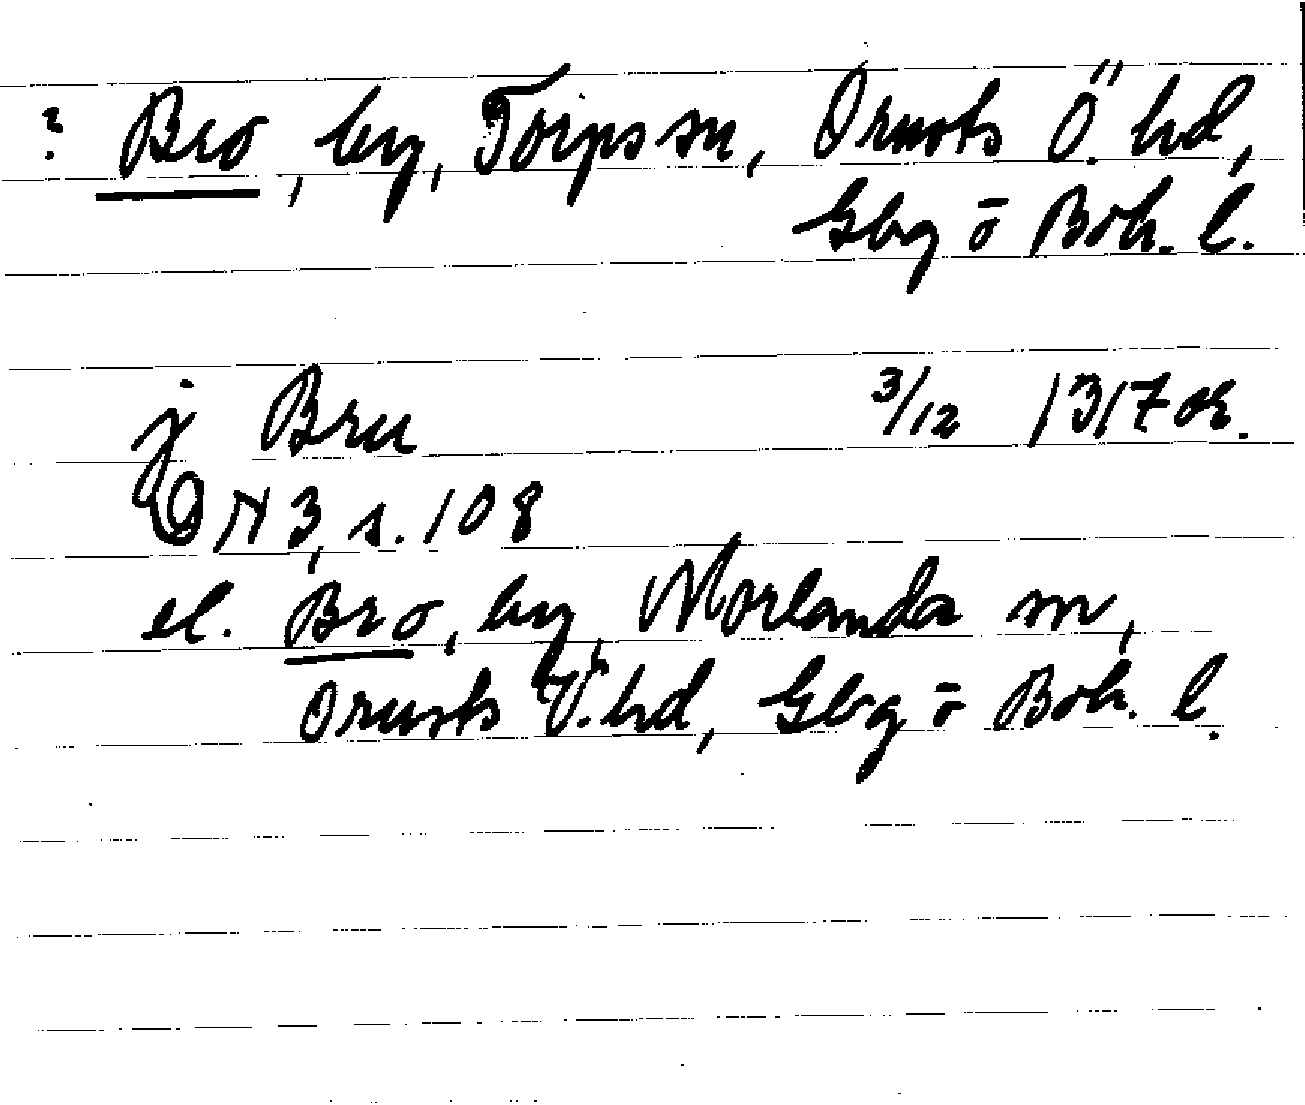 ? Bro, by, Torps sn, Orusts Ö. hd,
Gbg ō Boh. l.
j Bru 3/12 1317 or.
DN 3, s. 108
el. Bro, by, Morlanda sn,
Orusts V. hd, Gbg ō Boh. l.